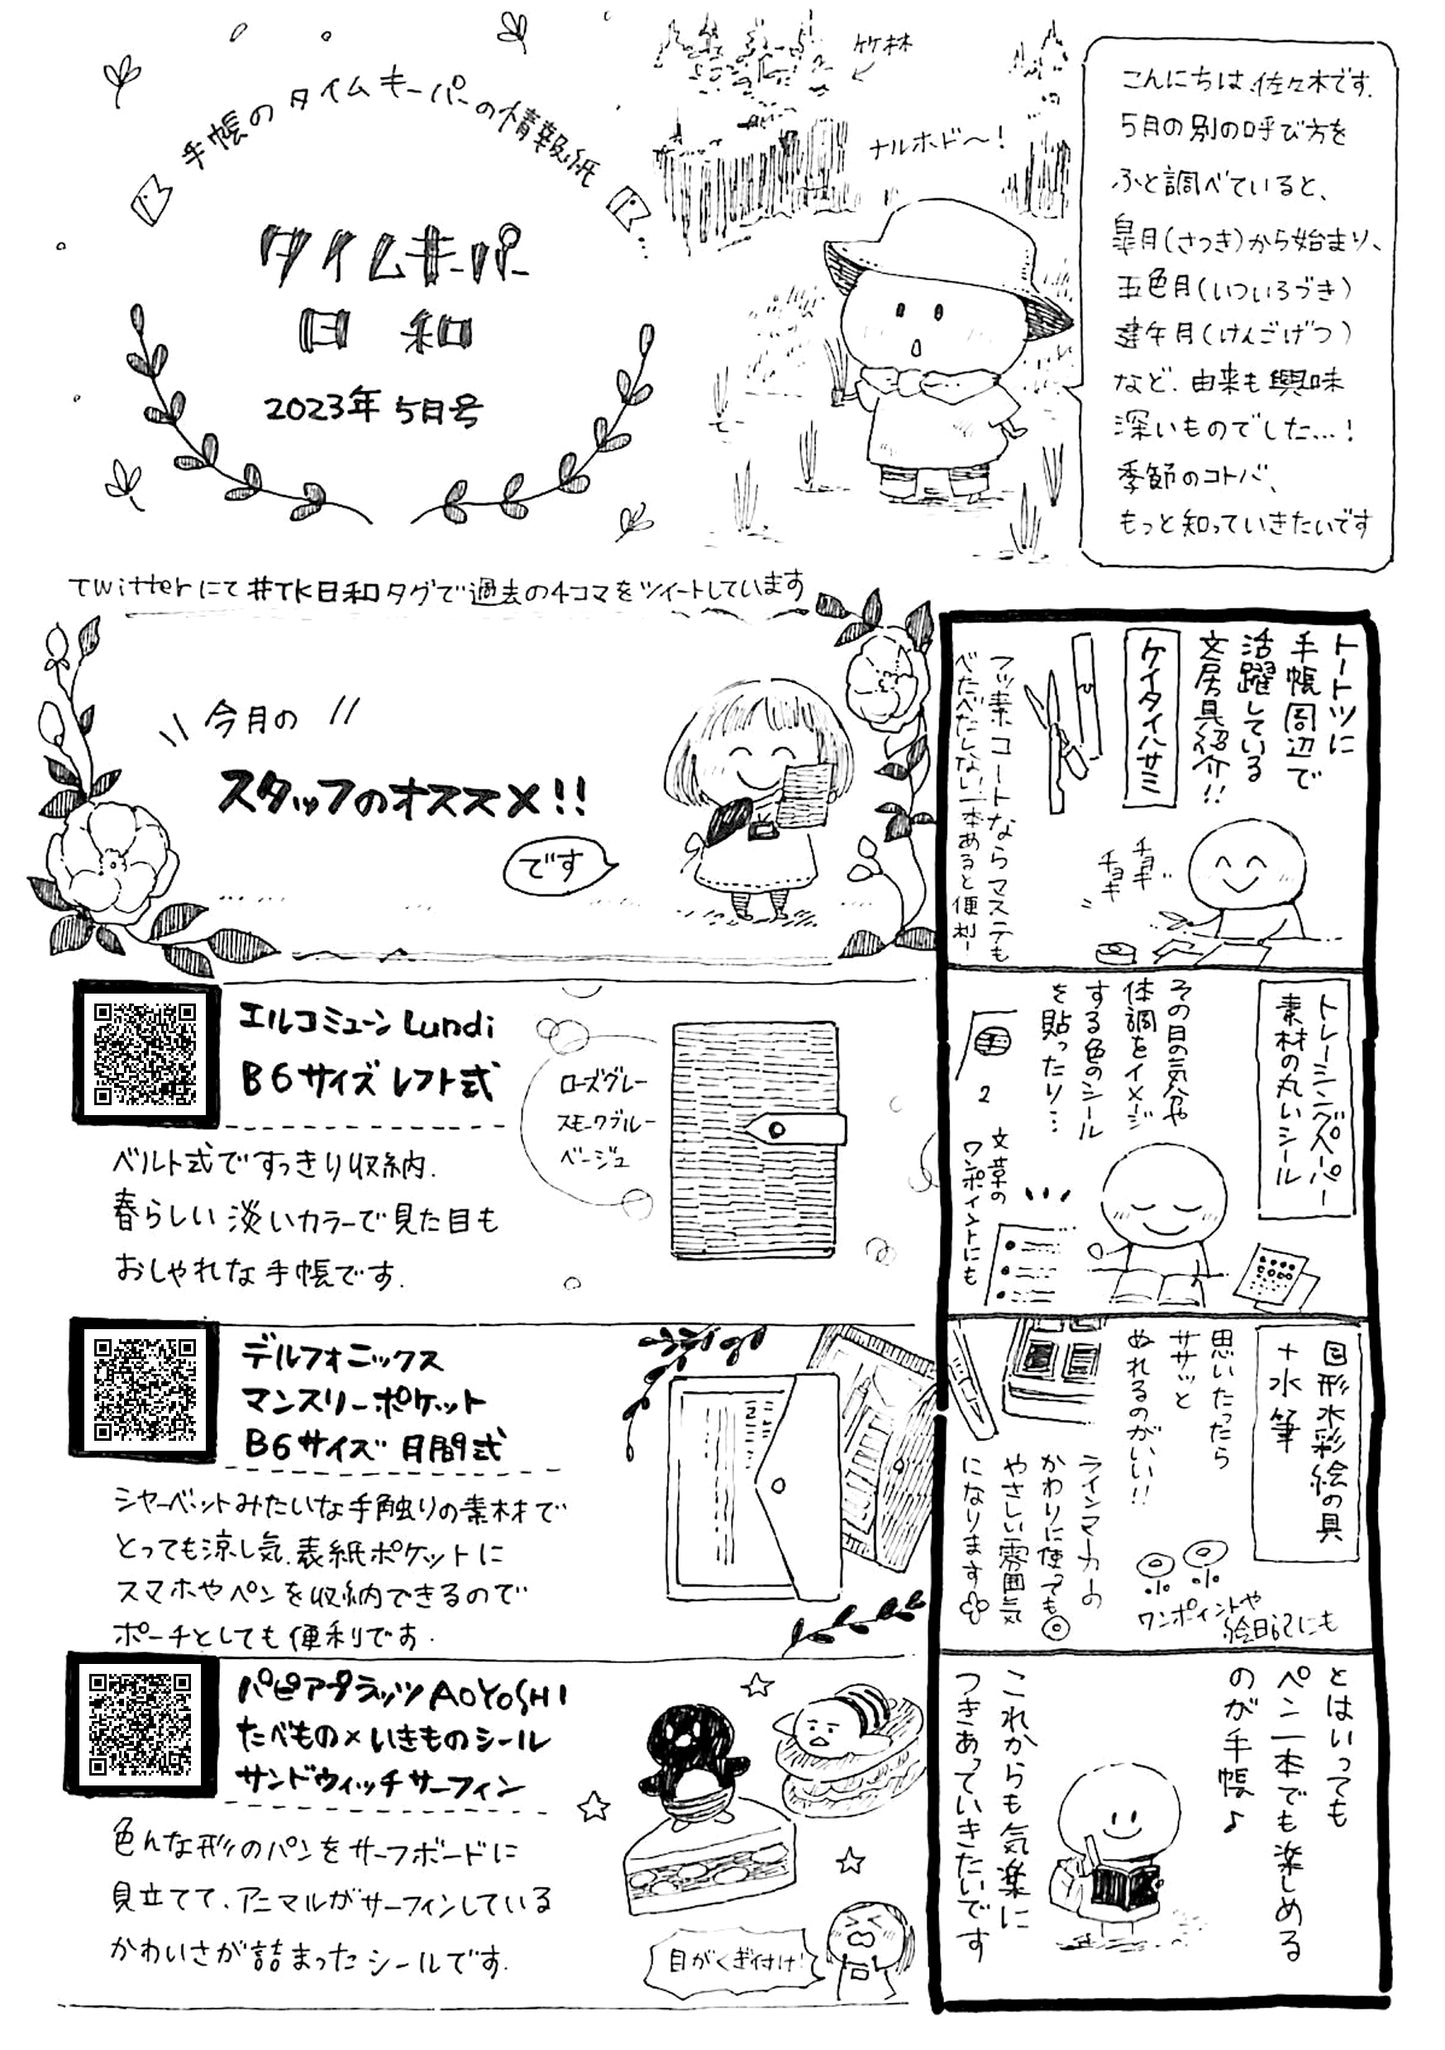 手帳のタイムキーパーの情報紙
タイムキーパー
日和
2023年5月号
竹林
ナルホド〜!
こんにちは、佐々木です。
5月の別の呼び方を
ふと調べていると、
皐月(さつき)から始まり、
五色月(いついろづき)
建午月(けんごげつ)
など、由来も興味
深いものでした…!
季節のコトバ、
もっと知っていきたいです
Twitterにて#TK日和タグで過去の4コマをツイートしています
今月の
スタッフのオススメ!!
です
エルコミューン Lundi
B6サイズ レフト式
ベルト式ですっきり収納。
春らしい淡いカラーで見た目も
おしゃれな手帳です。
ローズグレー
スモークブルー
ベージュ
デルフォニックス
マンスリーポケット
B6サイズ 月間式
シャーベットみたいな手触りの素材で
とっても涼し気。表紙ポケットに
スマホやペンを収納できるので
ポーチとしても便利です。
パピアプラッツ AOYOSHI
たべもの×いきものシール
サンドウィッチサーフィン
色んな形のパンをサーフボードに
見立てて、アニマルがサーフィンしている
かわいさが詰まったシールです。
目がくぎ付け!
トートツに
手帳周辺で
活躍している
文房具紹介!!
ケイタイハサミ
フッ素コートならマステも
べたべたしない!一本あると便利ー
チョキ
チョキ
トレーシングペーパー
素材の丸いシール
その日の気分や
体調をイメージ
する色のシール
を貼ったり…
2
文章の
ワンポイントにも
固形水彩絵の具
+水筆
思いたったら
ササッと
ぬれるのがいい!!
ラインマーカーの
かわりに使っても◎
やさしい雰囲気
になります
ワンポイントや
絵日記にも
とはいっても
ペン一本でも楽しめる
のが手帳♪
これからも気楽に
つきあっていきたいです